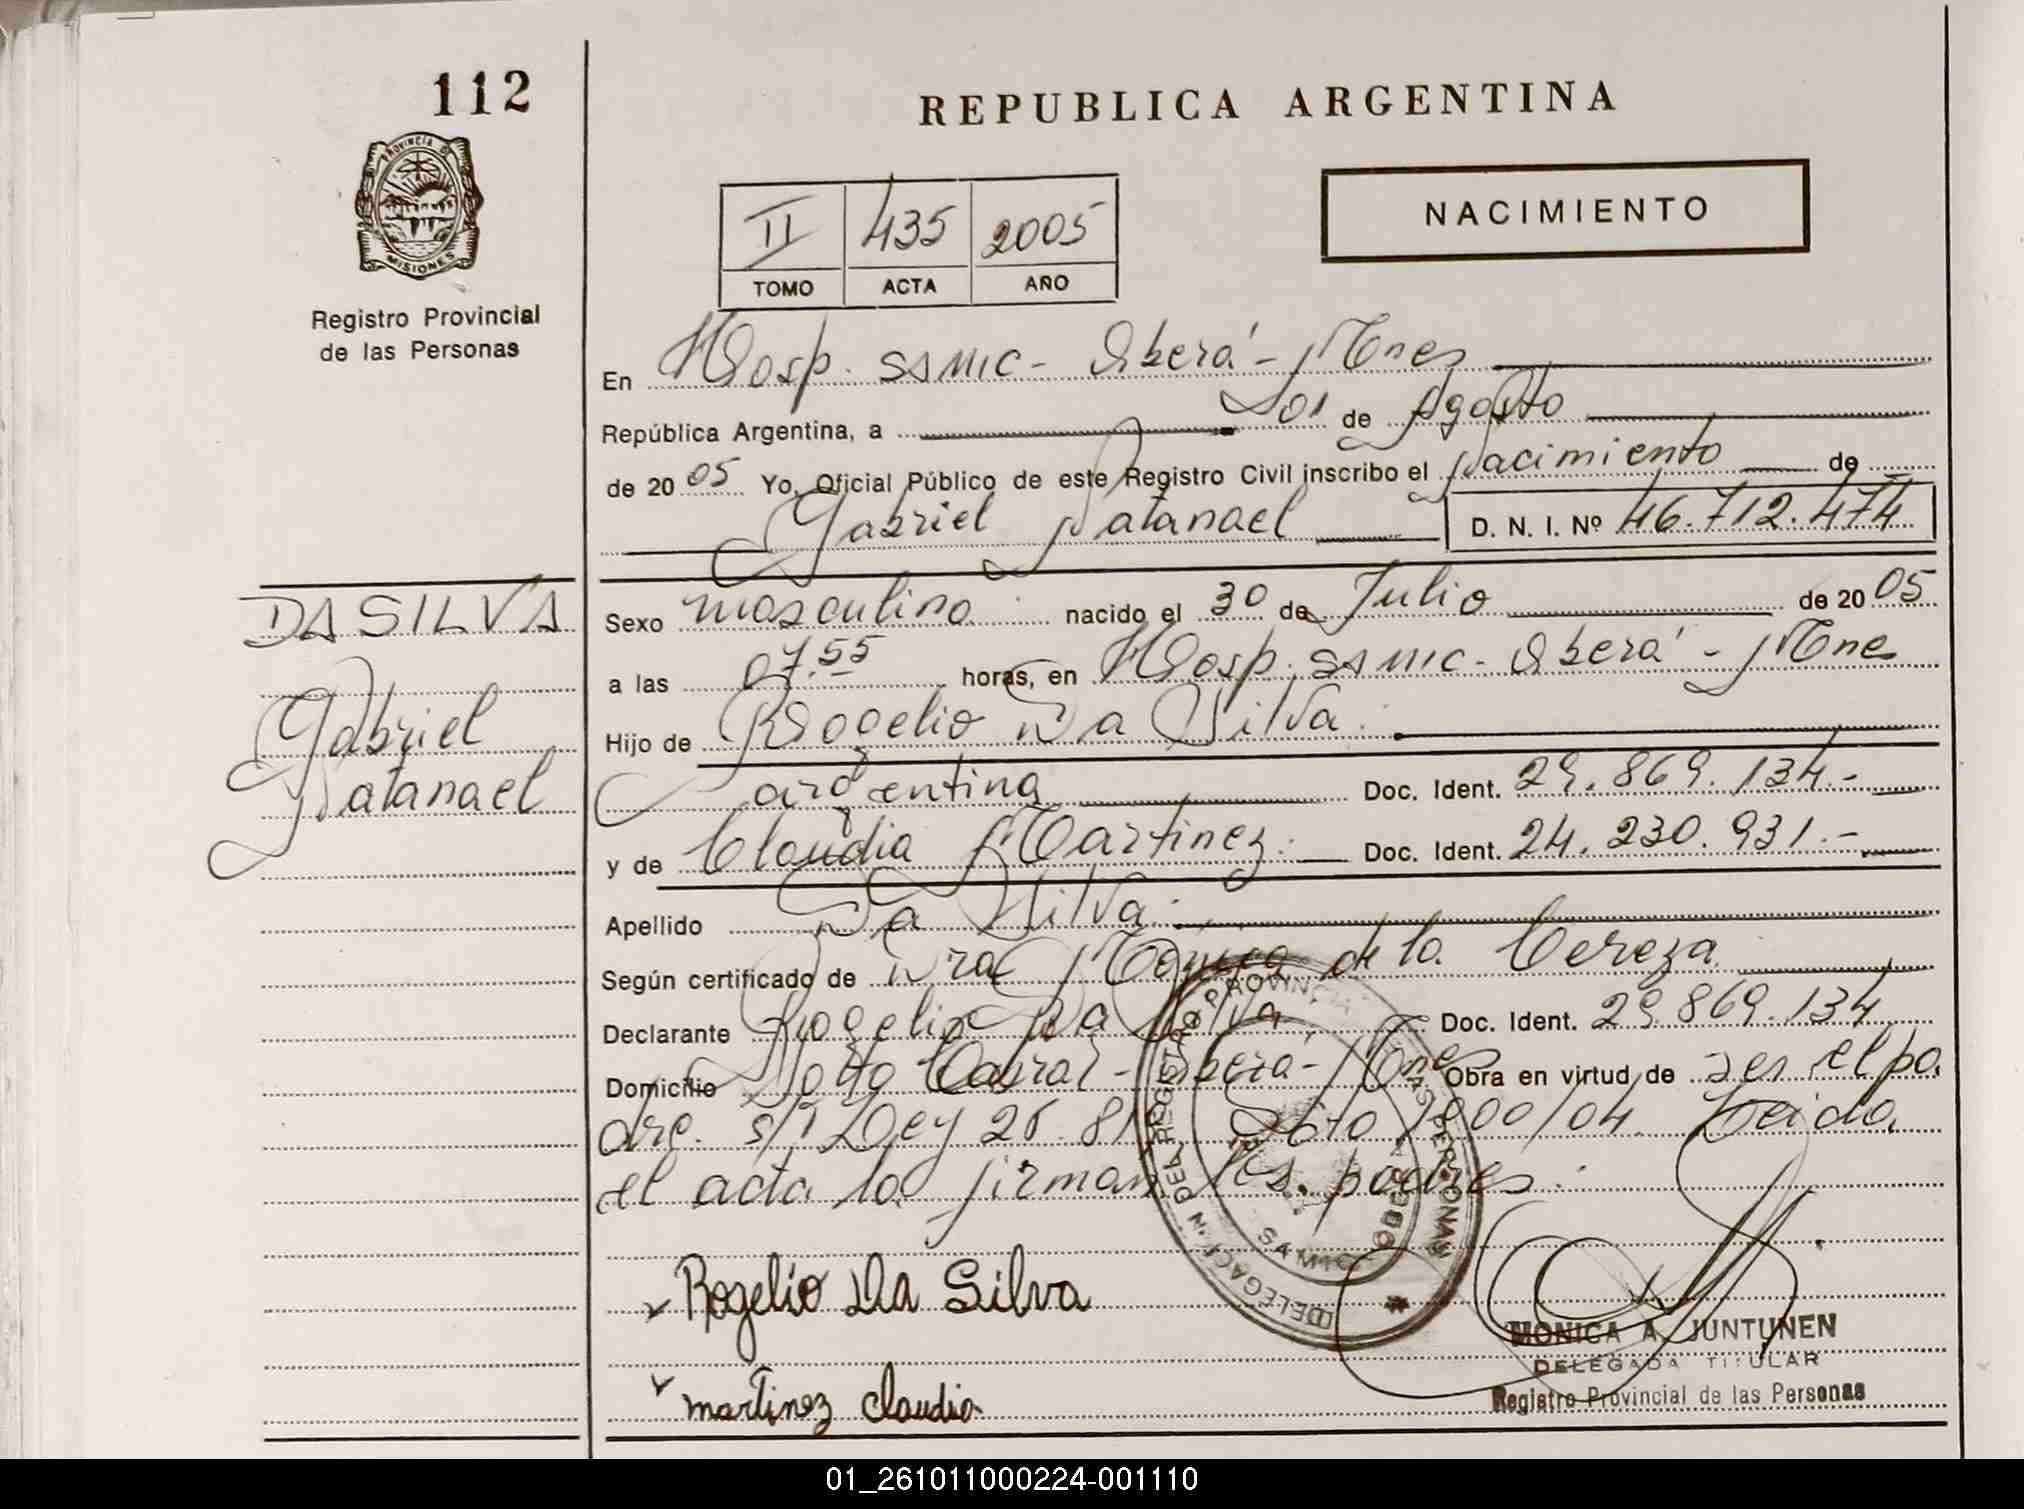 112
REPUBLICA ARGENTINA
PROVINCIA DE
MISIONES
Registro Provincial
de las Personas
NACIMIENTO
II 435 2005
TOMO ACTA AÑO
En Hosp. SAMIC - Oberá - Mnes
República Argentina, a 01 de Agosto
de 20 05 Yo, Oficial Público de este Registro Civil inscribo el Nacimiento de
Gabriel Natanael D. N. I. Nº 46.712.474
DA SILVA
Gabriel
Natanael
Sexo masculino nacido el 30 de Julio de 20 05
a las 07.55 horas, en Hosp. SAMIC - Oberá - Mnes
Hijo de Rogelio Da Silva.
argentina Doc. Ident. 29.869.134.-
y de Claudia Martinez. Doc. Ident. 24.230.931.-
Apellido Da Silva.
Según certificado de Dra Mónica de la Cereza
Declarante Rogelio Da Silva Doc. Ident. 29.869.134
Domicilio Soto Cabral - Oberá - Mnes Obra en virtud de ser el pa
dre. s/ Ley 26.81 Dto 1900/04. Leida
el acta la firman los padres.
Rogelio Da Silva
martinez claudia
DELEGACION DEL REGISTRO PROVINCIAL DE LAS PERSONAS
SAMIC
OBERA
MONICA A. JUNTUNEN
DELEGADA TITULAR
Registro Provincial de las Personas
01_261011000224-001110